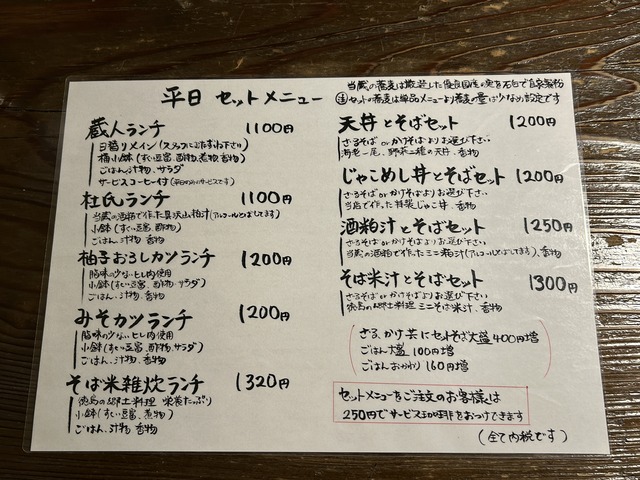 平日 セットメニュー
当蔵の蕎麦は厳選した優良国産の実を石臼で自家製粉
注 セットの蕎麦は単品メニューより蕎麦の量は少なめ設定です
蔵人ランチ 1100円
日替りメイン(スタッフにおたずね下さい)
桶小鉢(すくい豆富、酢物、煮物、香物)
ごはん、汁物、サラダ
サービスコーヒー付(平日のみのサービスです)
杜氏ランチ 1100円
当蔵の酒粕で作た具沢山粕汁(アルコールとばしてます)
小鉢(すくい豆富、酢物)
ごはん、汁物、香物
柚子おろしカツランチ 1200円
脂味の少ないヒレ肉使用
小鉢(すくい豆富、酢物、サラダ)
ごはん、汁物、香物
みそカツランチ 1200円
脂味の少ないヒレ肉使用
小鉢(すくい豆富、酢物、サラダ)
ごはん、汁物、香物
そば米雑炊ランチ 1320円
徳島の郷土料理 栄養たっぷり
小鉢(すくい豆富、煮物)
ごはん、汁物、香物
天丼とそばセット 1200円
ざるそば or かけそばよりお選び下さい
海老一尾、野菜二種の天丼、香物
じゃこめし丼とそばセット 1200円
ざるそば or かけそばよりお選び下さい
当店で作った特製じゃこ丼、香物
酒粕汁とそばセット 1250円
ざるそば or かけそばよりお選び下さい
当蔵の酒粕で作たミニ粕汁(アルコールとばしてます)、香物
そば米汁とそばセット 1300円
ざるそば or かけそばよりお選び下さい
徳島の郷土料理 ミニそば米汁、香物
ざる、かけ共にセットそば大盛 400円増
ごはん大盛 100円増
ごはんおかわり 160円増
セットメニューをご注文のお客様は
250円でサービス珈琲をおつけできます
(全て内税です)